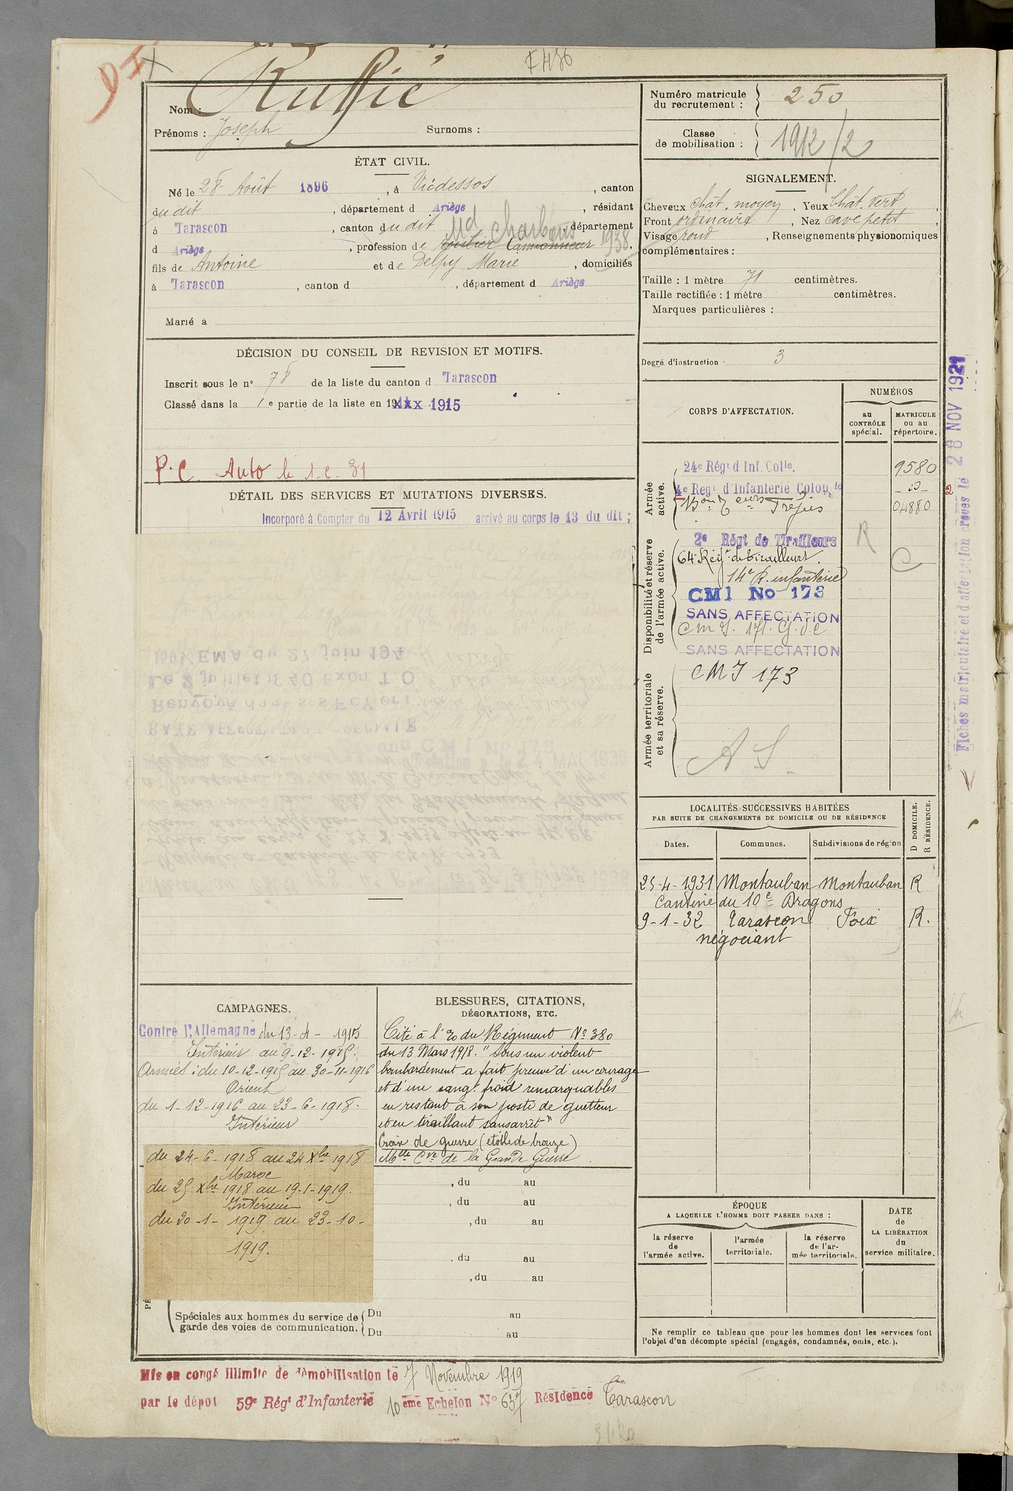 Ruffié
Nom :
Prénoms : Joseph Surnoms :
ÉTAT CIVIL.
Né le 28 Août 1896, à Vicdessos, canton
du dit, département d Ariège, résidant
à Tarascon, canton du dit, département
d Ariège, profession de Camionneur Md charbons 1938.
fils de Antoine et de Delpy Marie, domiciliés
à Tarascon, canton d , département d Ariège
Marié à
DÉCISION DU CONSEIL DE REVISION ET MOTIFS.
Inscrit sous le n° 78 de la liste du canton d Tarascon
Classé dans la 1e partie de la liste en 191xxx 1915
P.C Auto le 1.c.31
DÉTAIL DES SERVICES ET MUTATIONS DIVERSES.
Incorporé à Compter du 12 Avril 1915 arrivé au corps le 13 du dit ;
CAMPAGNES.
Contre l'Allemagne du 13-4-1915
Intérieur au 9-12-1915.
Armées : du 10-12-1915 au 30-11-1916
Orient
du 1-12-1916 au 23-6-1918.
Intérieur
du 24-6-1918 au 24 Xbre 1918
Maroc
du 25 Xbre 1918 au 19-1-1919.
Intérieur
du 20-1-1919 au 23-10-
1919.
BLESSURES, CITATIONS,
DÉCORATIONS, ETC.
Cité à l'O du Régiment N° 380
du 13 Mars 1918. "Sous un violent
bombardement a fait preuve d'un courage
et d'un sang froid remarquables
en restant à son poste de guetteur
et en tiraillant sans arrêt"
Croix de guerre (étoile de bronze)
Mlle Cve de la Grande Guerre
, du au
, du au
, du au
, du au
, du au
Spéciales aux hommes du service de garde des voies de communication.
Du au
Du au
Mis en congé illimité de démobilisation le 7 Novembre 1919
par le dépôt 59e Régt d'Infanterie 10ème Echelon N° 657 Résidence Tarascon
Numéro matricule du recrutement : 250
Classe de mobilisation : 1912/2
SIGNALEMENT.
Cheveux chât. moyen, Yeux Chât. vert,
Front ordinaire, Nez cave petit,
Visage rond, Renseignements physionomiques
complémentaires :
Taille : 1 mètre 71 centimètres.
Taille rectifiée : 1 mètre centimètres.
Marques particulières :
Degré d'instruction : 3
CORPS D'AFFECTATION.
NUMÉROS
au CONTRÔLE spécial.
MATRICULE ou au répertoire.
Armée active.
24e Régt d'Inf. Colle. 9580
4e Regt d'Infanterie Colonle
Bon Teurs Fréjus 04880
Disponibilité et réserve de l'armée active.
2e Régt de Tirailleurs R
64e Régt de tirailleurs. C
14e R. infanterie
CM1 No 173
SANS AFFECTATION
SANS AFFECTATION
Armée territoriale et sa réserve.
CMI 173
A S.
Fiches matriculaire et d'affectation créées le 28 NOV 1921
LOCALITÉS SUCCESSIVES HABITÉES
PAR SUITE DE CHANGEMENTS DE DOMICILE OU DE RÉSIDENCE
Dates. Communes. Subdivisions de région D DOMICILE. R RÉSIDENCE.
25-4-1931 Montauban Montauban R
Cantine du 10e Dragons
9-1-32 Tarascon Foix R.
négociant
ÉPOQUE
A LAQUELLE L'HOMME DOIT PASSER DANS :
la réserve de l'armée active.
l'armée territoriale.
la réserve de l'armée territoriale.
DATE de LA LIBÉRATION du service militaire.
Ne remplir ce tableau que pour les hommes dont les services font
l'objet d'un décompte spécial (engagés, condamnés, omis, etc.).